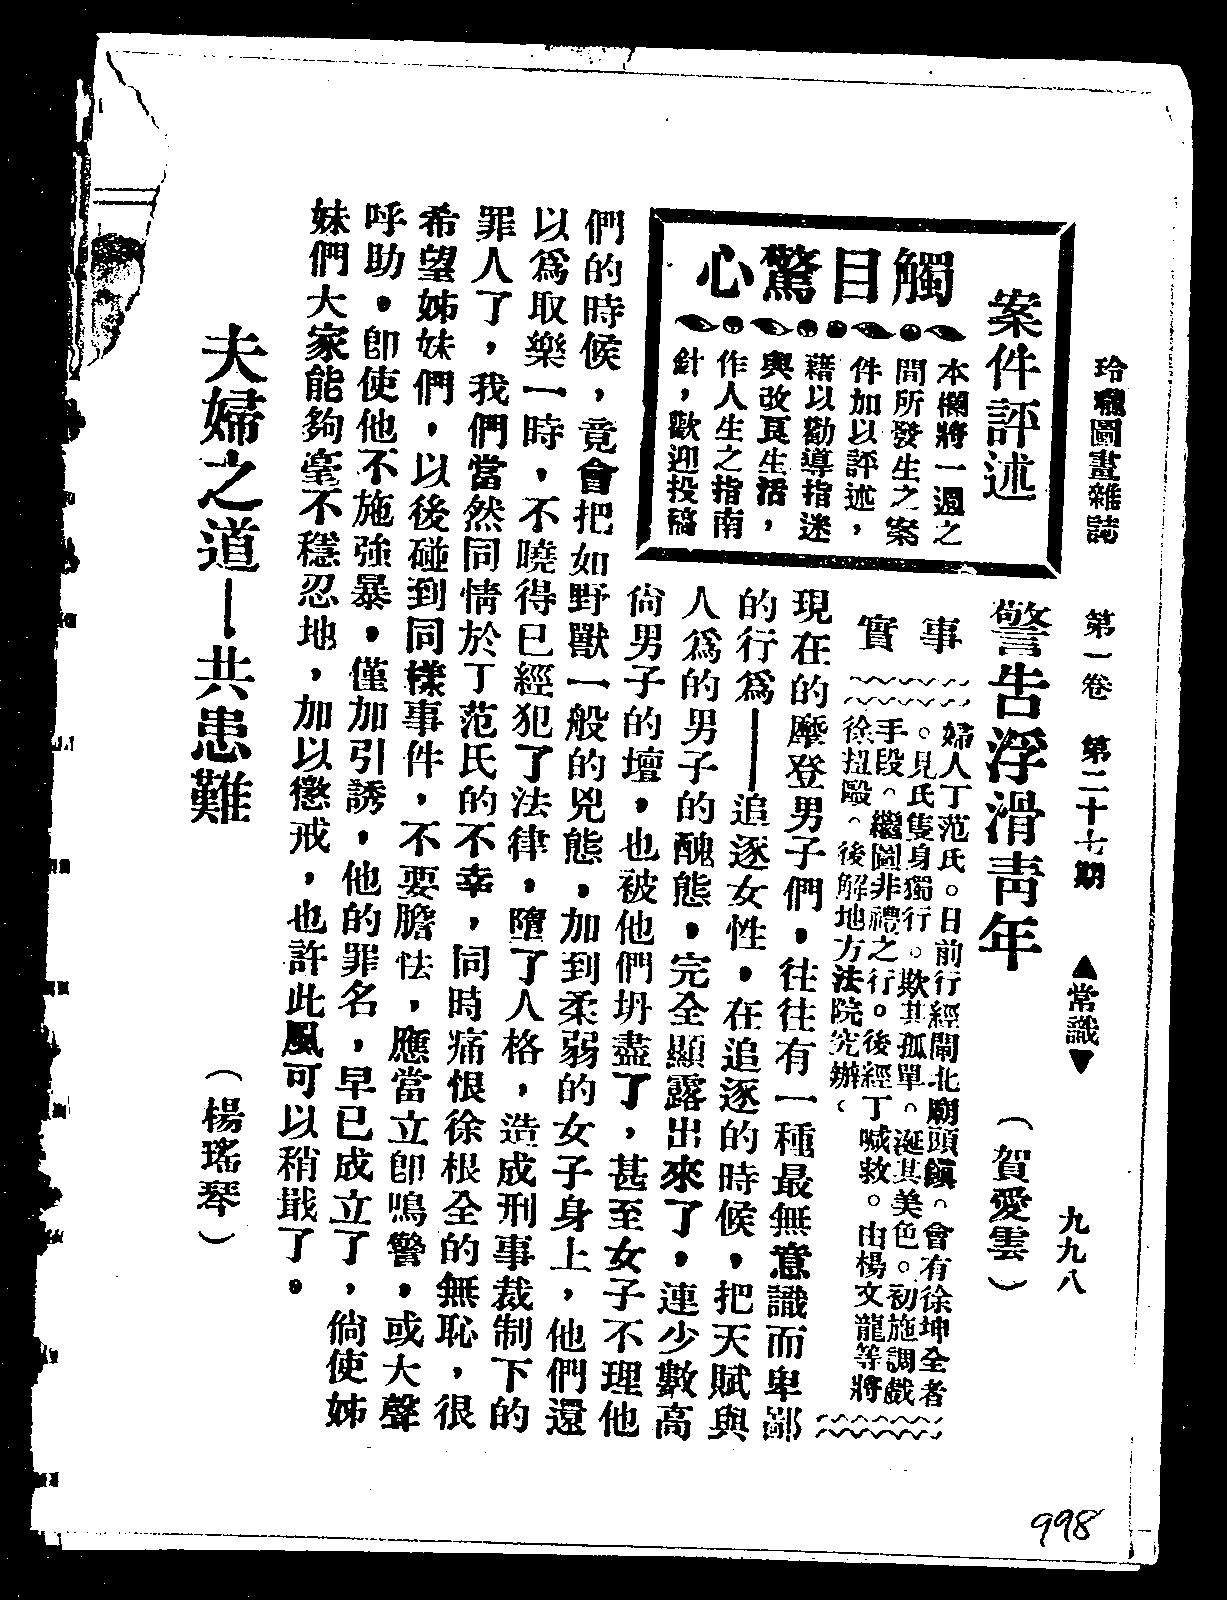 玲瓏圖畫雜誌 第一卷 第二十七期 ▲常識▼ 九九八
案件評述
觸目驚心
本欄將一週之
間所發生之案
件加以評述，
藉以勸導指迷
與改良生活，
作人生之指南
針，歡迎投稿
警告浮滑青年 （賀愛雲）
事實
婦人丁范氏。日前行經閘北廟頭鎭。會有徐坤全者
。見氏隻身獨行。欺其孤單。涎其美色。初施調戲
手段。繼圖非禮之行。後經丁喊救。由楊文龍等將
徐扭毆。後解地方法院究辦。
現在的摩登男子們，往往有一種最無意識而卑鄙
的行爲——追逐女性，在追逐的時候，把天賦與
人爲的男子的醜態，完全顯露出來了，連少數高
尙男子的壇，也被他們坍盡了，甚至女子不理他
們的時候，竟會把如野獸一般的兇態，加到柔弱的女子身上，他們還
以爲取樂一時，不曉得已經犯了法律，墮了人格，造成刑事裁制下的
罪人了，我們當然同情於丁范氏的不幸，同時痛恨徐根全的無恥，很
希望姊妹們，以後碰到同樣事件，不要膽怯，應當立卽鳴警，或大聲
呼助，卽使他不施強暴，僅加引誘，他的罪名，早已成立了，倘使姊
妹們大家能夠毫不穩忍地，加以懲戒，也許此風可以稍戢了。
夫婦之道—共患難 （楊瑤琴）
998